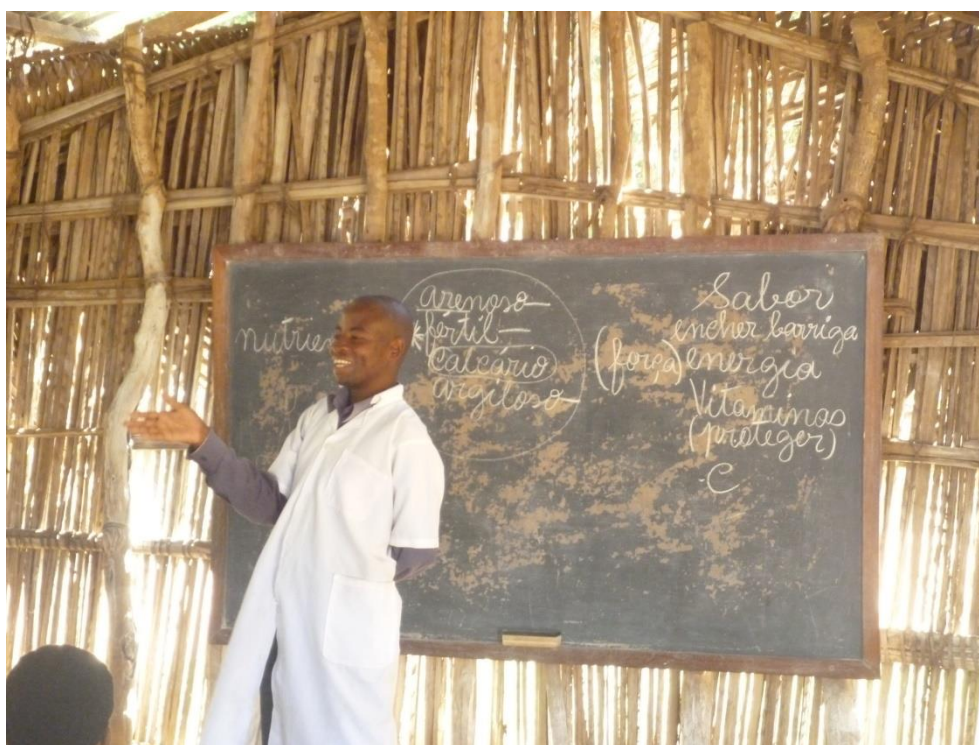 arenoso
nutrien * fértil
calcário
argiloso
Sabor
encher barriga
(força) energia
Vitaminas
(proteger)
C